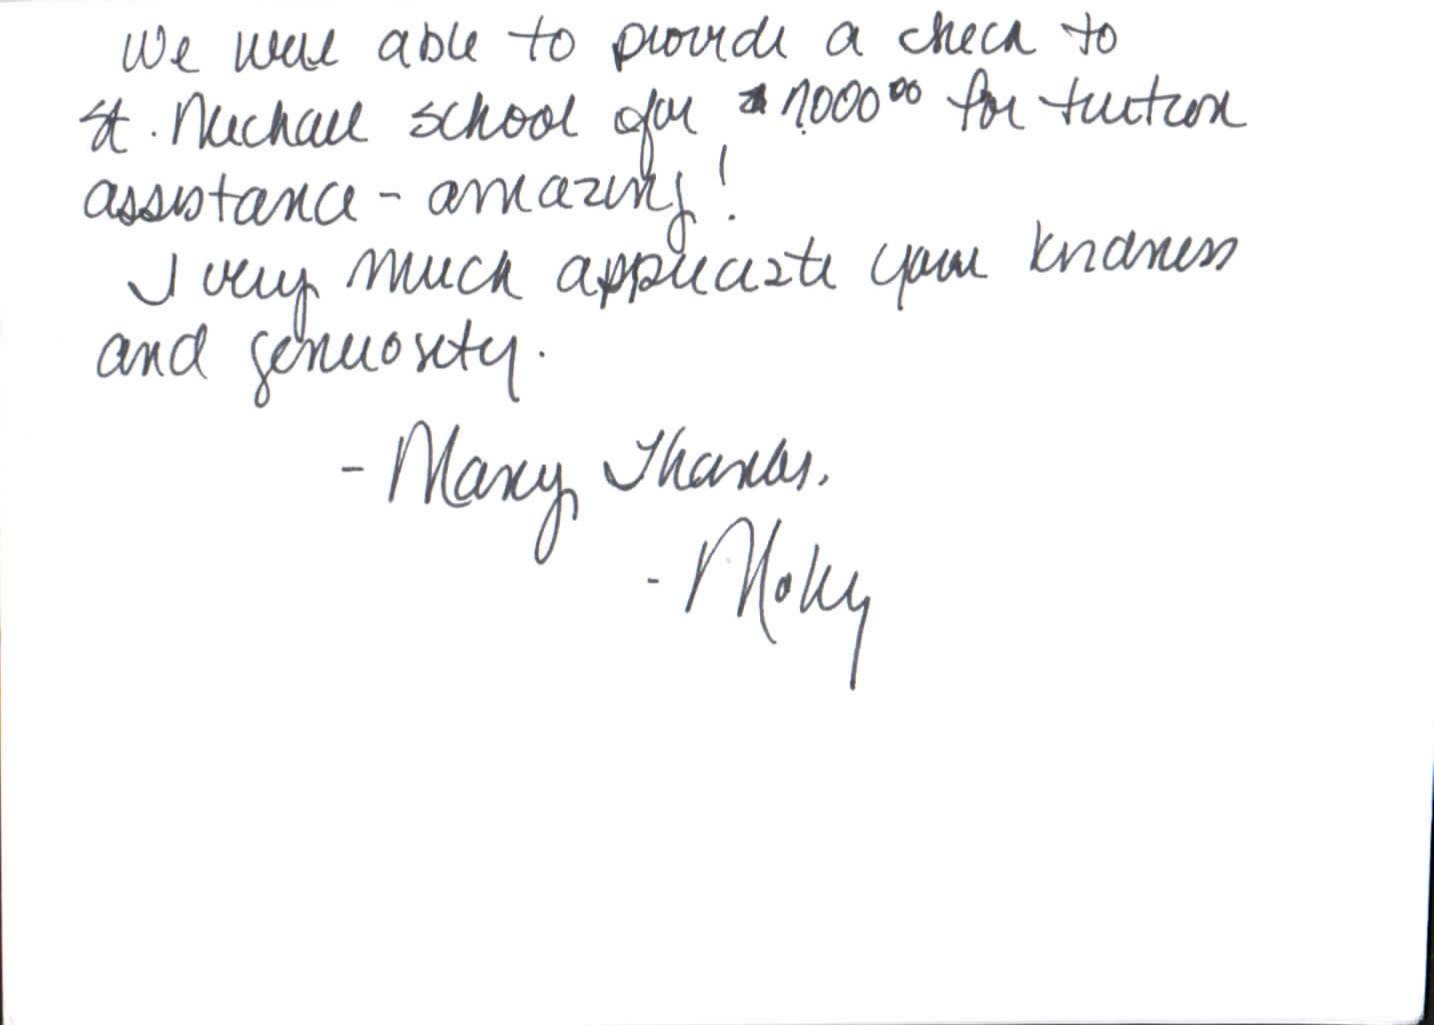 We were able to provide a check to
St. Michael school for $7,000⁰⁰ for tuition
assistance - amazing!
I very much appreciate your kindness
and generosity.
- Many Thanks,
- Molly